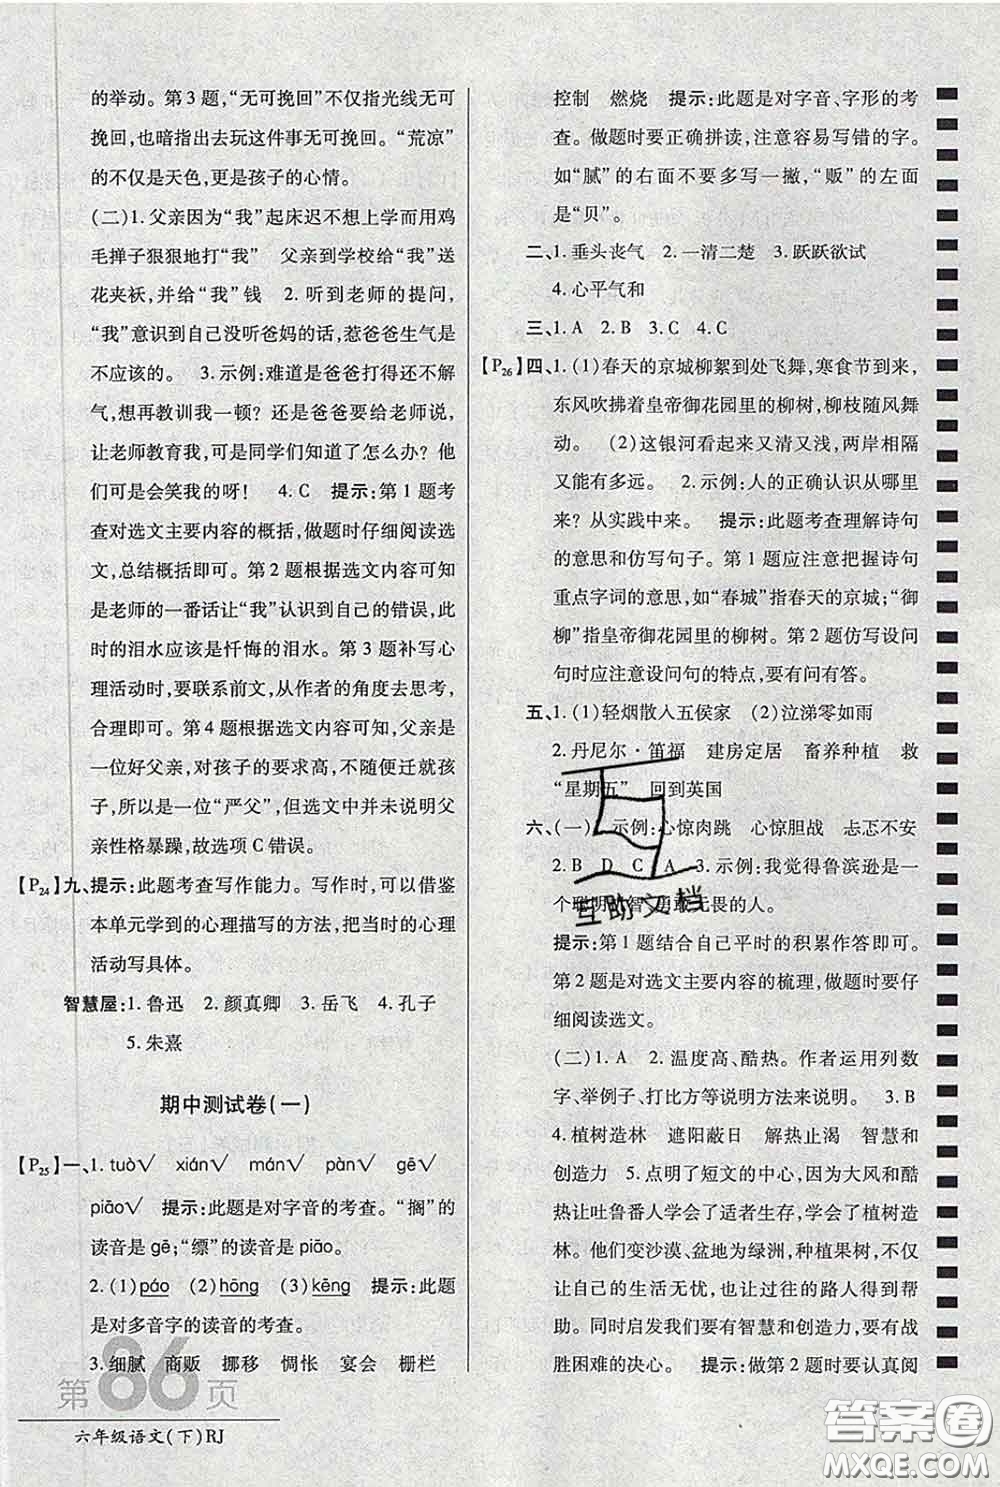 的举动。第3题,“无可挽回”不仅指光线无可
挽回,也暗指出去玩这件事无可挽回。“荒凉”
的不仅是天色,更是孩子的心情。
(二)1.父亲因为“我”起床迟不想上学而用鸡
毛掸子狠狠地打“我” 父亲到学校给“我”送
花夹袄,并给“我”钱 2.听到老师的提问,
“我”意识到自己没听爸妈的话,惹爸爸生气是
不应该的。 3.示例:难道是爸爸打得还不解
气,想再教训我一顿?还是爸爸要给老师说,
让老师教育我?可是同学们知道了怎么办?他
们可是会笑我的呀! 4.C 提示:第1题考
查对选文主要内容的概括,做题时仔细阅读选
文,总结概括即可。第2题根据选文内容可知
是老师的一番话让“我”认识到自己的错误,此
时的泪水应该是忏悔的泪水。第3题补写心
理活动时,要联系前文,从作者的角度去思考,
合理即可。第4题根据选文内容可知,父亲是
一位好父亲,对孩子的要求高,不随便迁就孩
子,所以是一位“严父”,但选文中并未说明父
亲性格暴躁,故选项C错误。
【P24】九、提示:此题考查写作能力。写作时,可以借鉴
本单元学到的心理描写的方法,把当时的心理
活动写具体。
智慧屋:1.鲁迅 2.颜真卿 3.岳飞 4.孔子
5.朱熹
期中测试卷(一)
【P25】一、1.tuò√ xián√ mán√ pàn√ gē√
piāo√ 提示:此题是对字音的考查。“搁”的
的读音是gē;“缥”的读音是piāo。
2.(1)páo (2)hōng (3)kēng 提示:此题
是对多音字的读音的考查。
3.细腻 商贩 挪移 惆怅 宴会 栅栏
第86页
六年级语文(下)RJ
控制 燃烧 提示:此题是对字音、字形的考
查。做题时要正确拼读,注意容易写错的字。
如“腻”的右面不要多写一撇,“贩”的左面
是“贝”。
二、1.垂头丧气 2.一清二楚 3.跃跃欲试
4.心平气和
三、1.A 2.B 3.C 4.C
【P26】四、1.(1)春天的京城柳絮到处飞舞,寒食节到来,
东风吹拂着皇帝御花园里的柳树,柳枝随风舞
动。 (2)这银河看起来又清又浅,两岸相隔
又能有多远。 2.示例:人的正确认识从哪里
来?从实践中来。 提示:此题考查理解诗句
的意思和仿写句子。第1题应注意把握诗句
重点字词的意思,如“春城”指春天的京城;“御
柳”指皇帝御花园里的柳树。第2题仿写设问
句时应注意设问句的特点,要有问有答。
五、1.(1)轻烟散入五侯家 (2)泣涕零如雨
2.丹尼尔·笛福 建房定居 畜养种植 救
“星期五” 回到英国
六、(一)1.示例:心惊肉跳 心惊胆战 忐忑不安
2.B D C A 3.示例:我觉得鲁滨逊是一
个聪明机智、勇敢无畏的人。
提示:第1题结合自己平时的积累作答即可。
第2题是对选文主要内容的梳理,做题时要仔
细阅读选文。
(二)1.A 2.温度高、酷热。作者运用列数
字、举例子、打比方等说明方法来说明。 3.B
4.植树造林 遮阳蔽日 解热止渴 智慧和
创造力 5.点明了短文的中心,因为大风和酷
热让吐鲁番人学会了适者生存,学会了植树造
林。他们变沙漠、盆地为绿洲,种植果树,不仅
让自己的生活无忧,也让路人得到帮
助。同时启发我们要有智慧和创造力,要有战
胜困难的决心。 提示:做第2题要认真阅
互助文档
答案圈
MXQE.COM